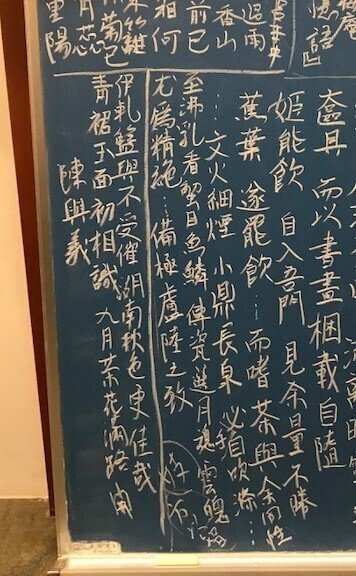 憶語
過雨
香山
前已
相何
籬
菊已
陽
奩具 而以書畫梱載自隨
姬能飲 自入吾門 見余量不勝
蕉葉 遂罷飲…而嗜茶與余同性
…文火細煙 小鼎長泉 必手自吹滌…
至沸乳看蟹目魚鱗 傳瓷選月魂雲魄
尤為精絕…備極盧陸之致
伊軋籃輿不受催 湖南秋色更佳哉
青裙玉面初相識 九月茶花滿路開
陳與義